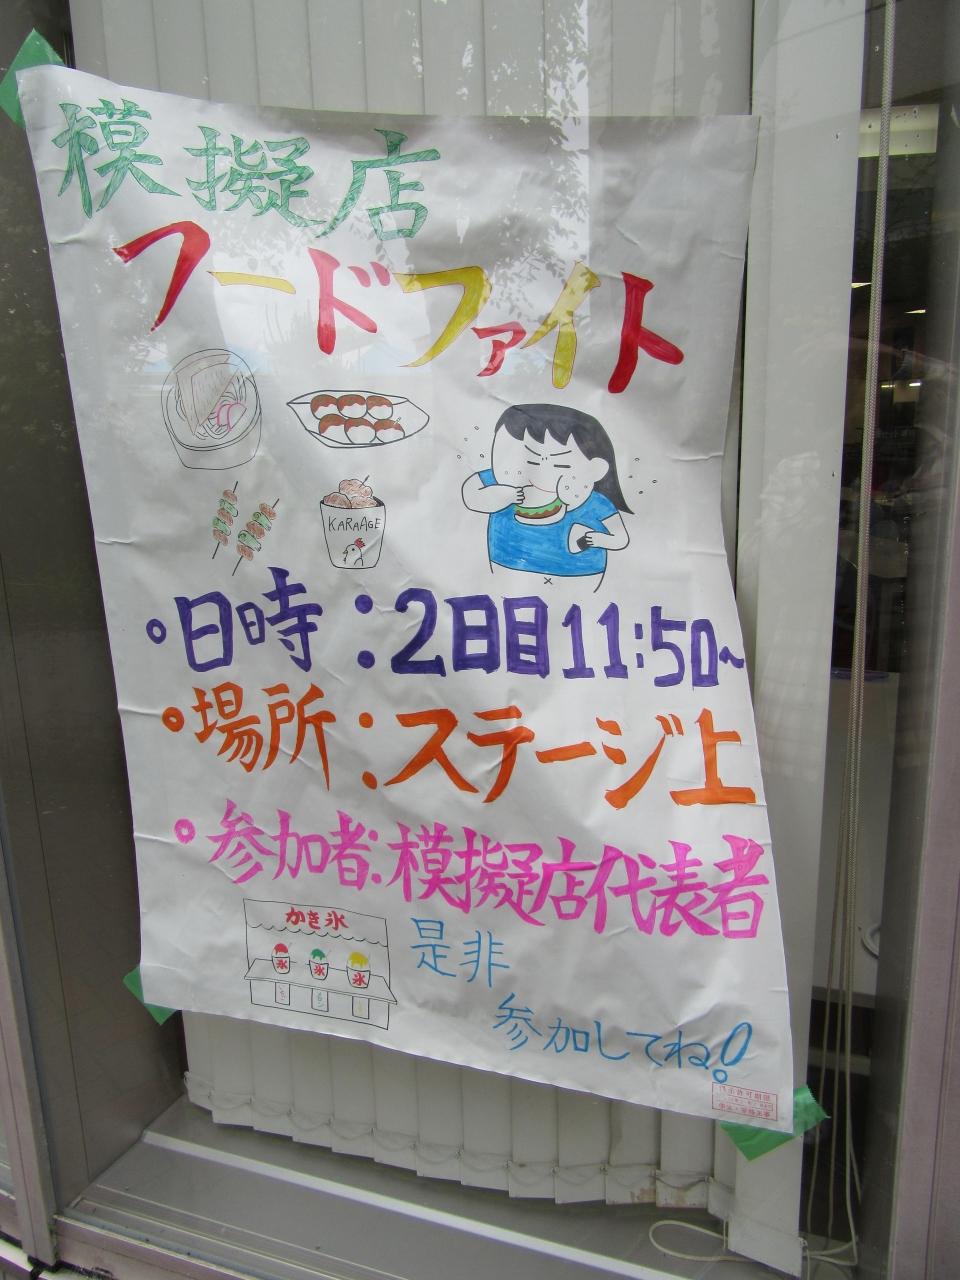 模擬店
フードファイト
KARAAGE
•日時：2日目11:50~
•場所：ステージ上
•参加者：模擬店代表者
かき氷
氷 氷 氷
是非
参加してね!
掲示許可期限